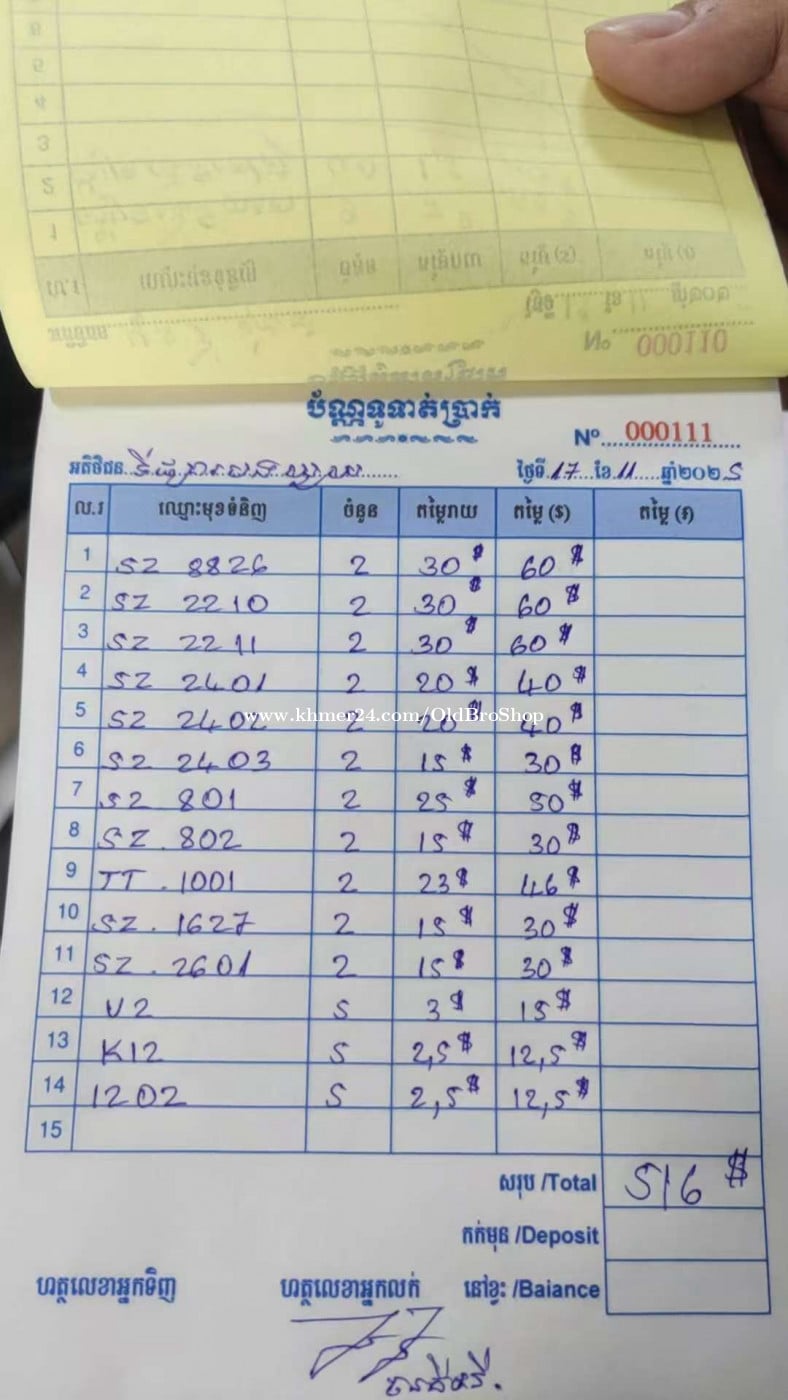 ប័ណ្ណទូទាត់ប្រាក់
Nº 000111
អតិថិជន
ថ្ងៃទី 17 ខែ 11 ឆ្នាំ២០២5
ល.រ ឈ្មោះមុខទំនិញ ចំនួន តម្លៃរាយ តម្លៃ ($) តម្លៃ (៛)
1 SZ 8826 2 30$ 60$
2 SZ 2210 2 30$ 60$
3 SZ 2211 2 30$ 60$
4 SZ 2401 2 20$ 40$
5 SZ 2402 2 20$ 40$
www.khmer24.com/OldBroShop
6 SZ 2403 2 15$ 30$
7 SZ 801 2 25$ 50$
8 SZ. 802 2 15$ 30$
9 TT. 1001 2 23$ 46$
10 SZ. 1627 2 15$ 30$
11 SZ. 2601 2 15$ 30$
12 V2 5 3$ 15$
13 K12 5 2,5$ 12,5$
14 1202 5 2,5$ 12,5$
15
សរុប /Total 516$
កក់មុន /Deposit
ហត្ថលេខាអ្នកទិញ ហត្ថលេខាអ្នកលក់ នៅខ្វះ /Baiance